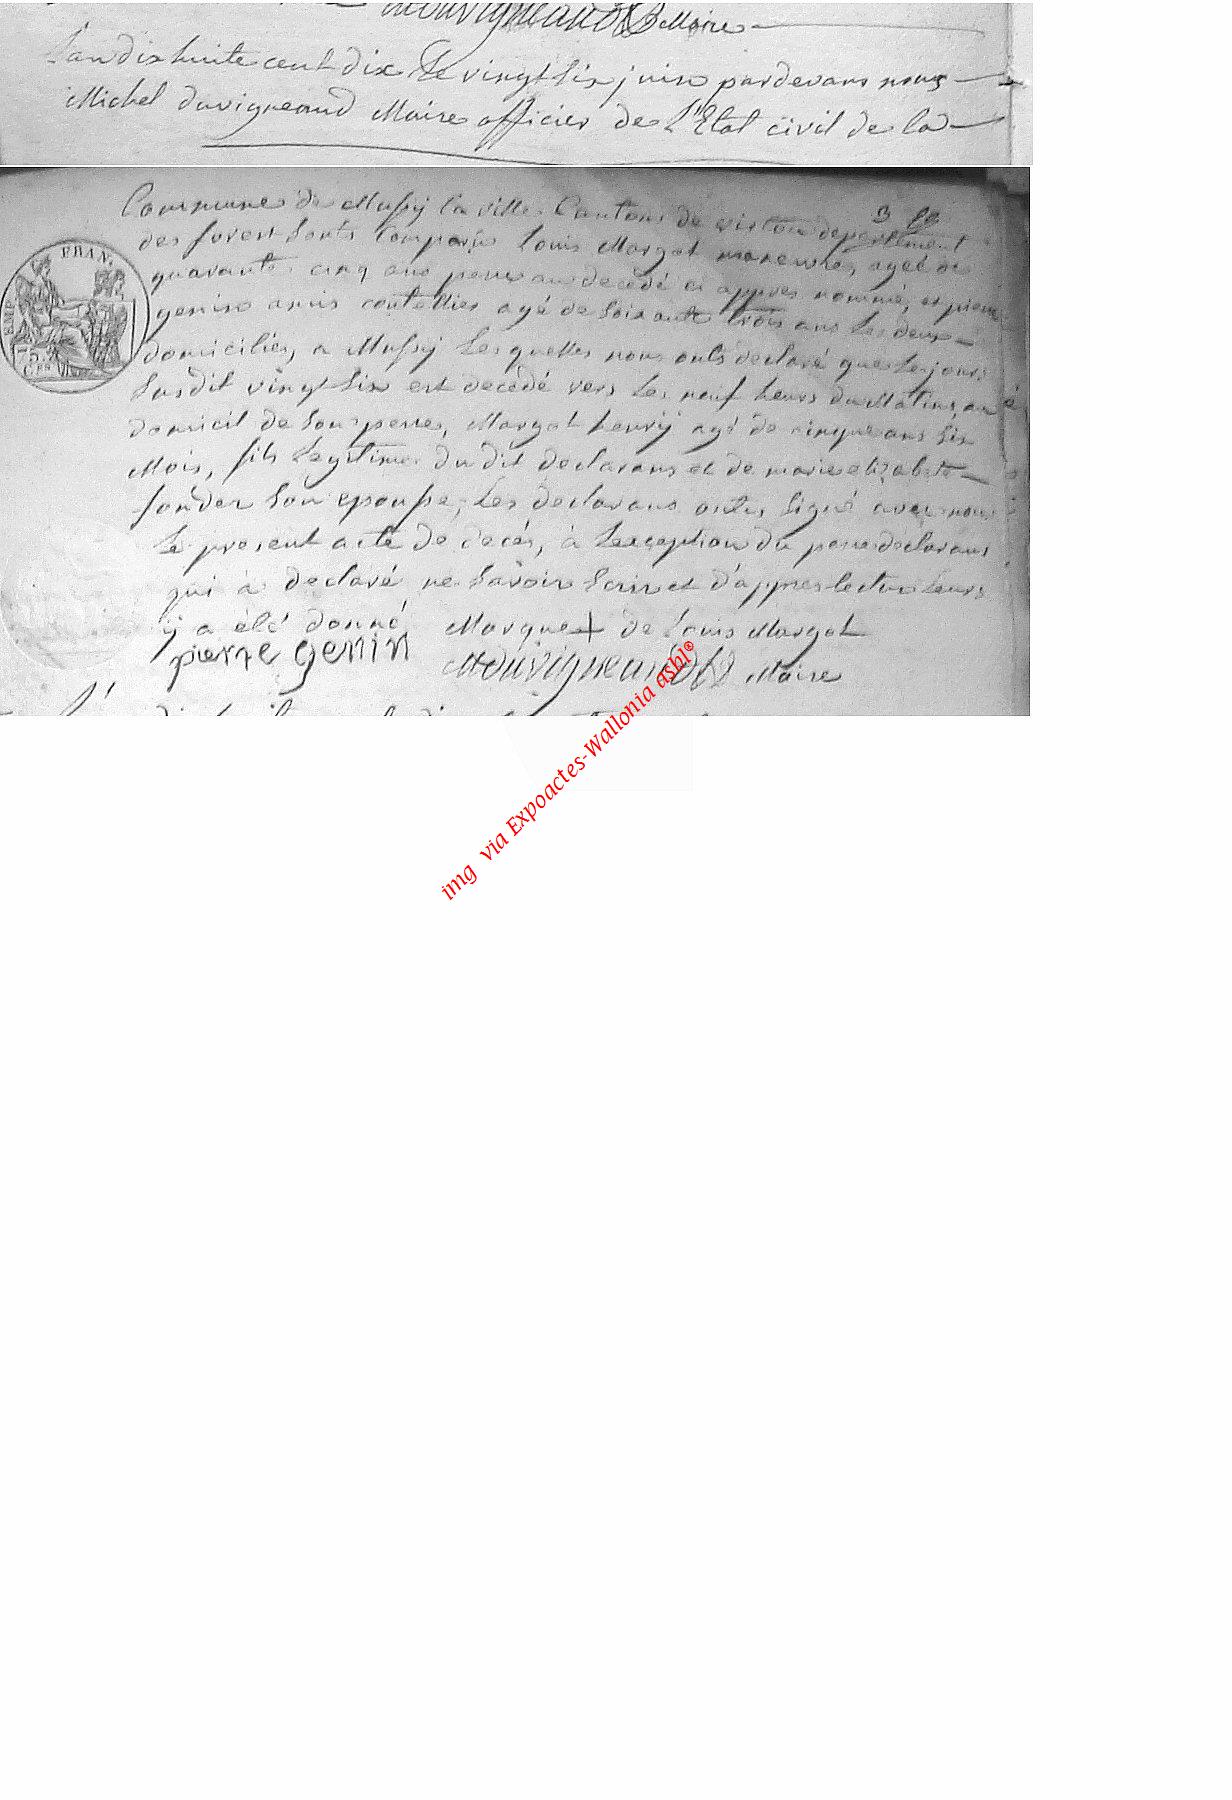 Mduvigneaud Maire
L'an dix huite cent dix Le vingt six juin pardevans nous
Michel duvigneaud Maire officier de L'Etat civil de la
3 
Commune de Mussy la ville Canton de virton departement
des forest sonts comparus louis Margot manewre, agéé de
quarante cinq ans pere au decédé ci appres nommé, et pierre
genin amis coutellier agé de soixante trois ans les deux
domiciliés, a Mussy Les quelles nous onts declaré que le jours
susdit vingt six est decédé vers les neuf heurs du Matins, au
domicil de son pere, Margot henrÿ agé de cinque ans six
Mois, fils Legitime du dit declarans et de marie elizabete
sonder son epousse, Les declarans onts signé avec nous
Le present acte de decés, à Lexception du pere declarans
qui à declaré ne savoir Ecrire et d'appres lecture leurs
ÿ a été donné Marque + de Louis Margot
pierre genin Mduvigneaud Maire
EMP. FRAN.
75. CES
img via Expoactes-Wallonia asbl®